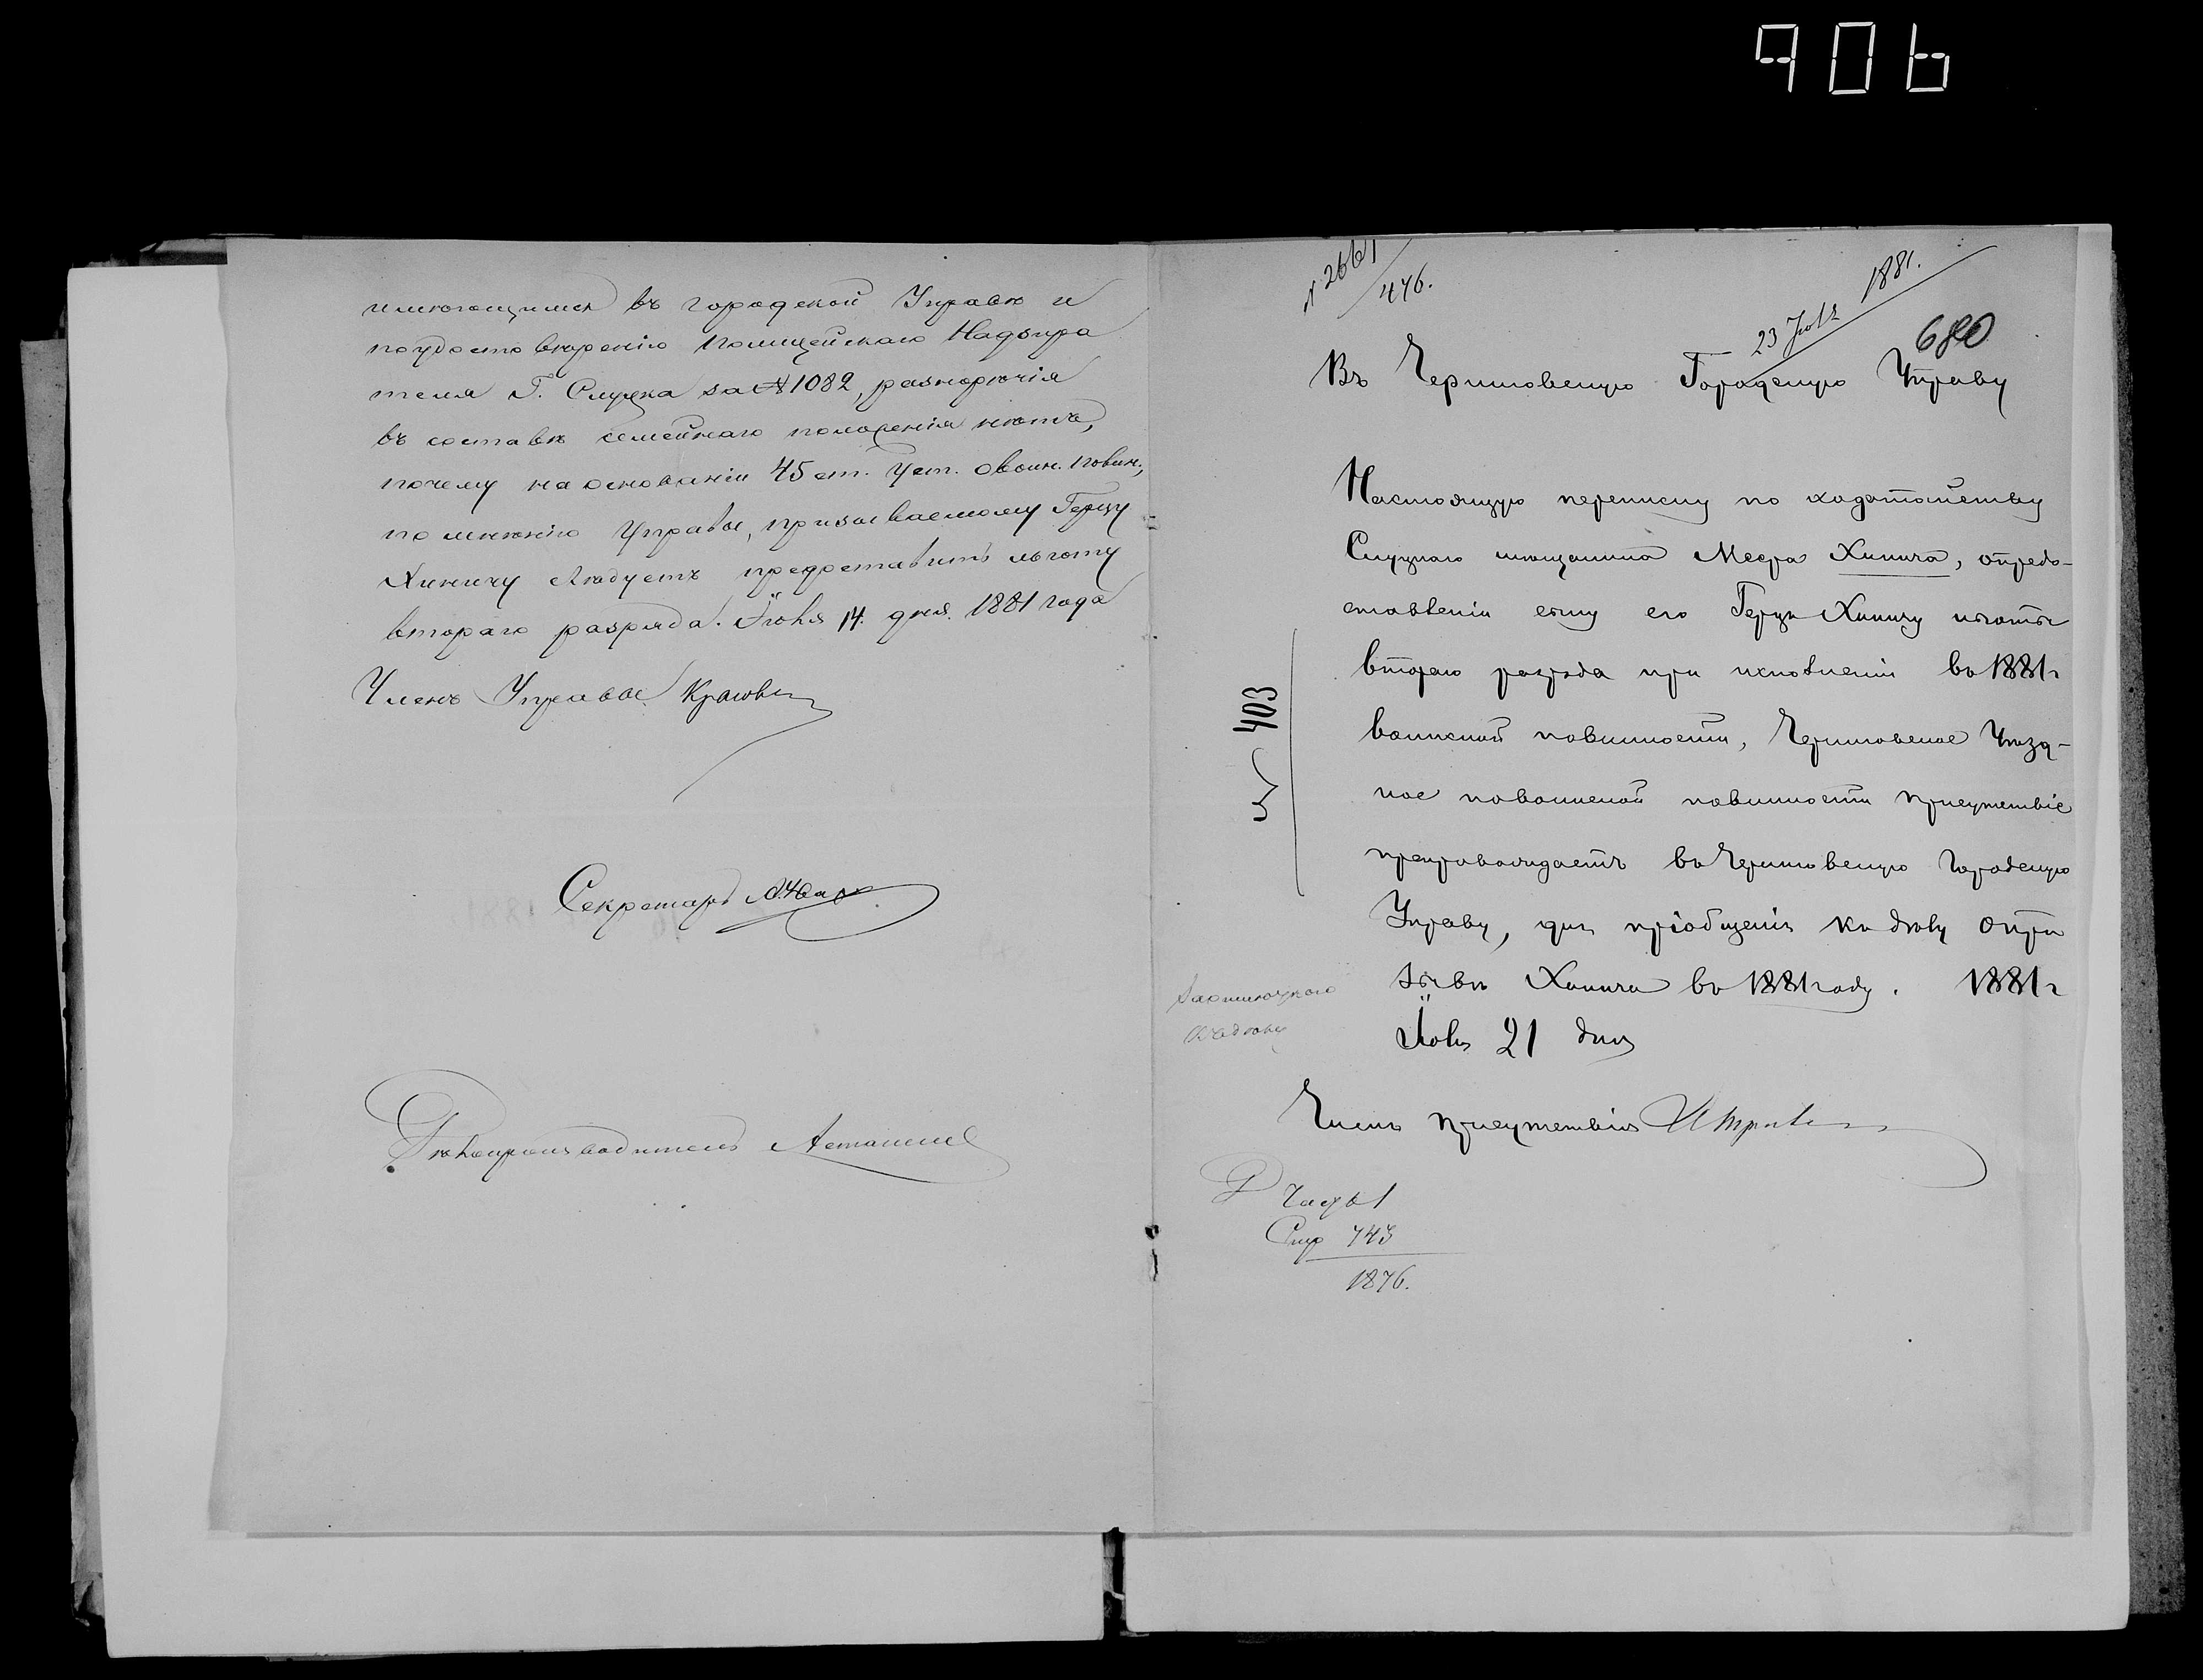 906
имеющимся въ городской Управѣ и
по удостовѣренію Полицейскаго Надзира
теля Г. Слуцка за № 1082, разнорѣчія
въ составѣ семейнаго положенія нѣтъ,
почему на основаніи 45 ст. Уст. о воин. повин.,
по мнѣнію Управы, призываемому Герцу
Хиничу слѣдуетъ предоставить льготу
втораго разряда. Іюля 14. дня. 1881 года
Членъ Управы
Секретарь
Дѣлопроизводитель
№ 2661
446.
23 Іюля 1881.
680
Въ Черниговскую Городскую Управу
Настоящую переписку по ходатайству
Слуцкаго мѣщанина Меера Хинича, о предо-
ставленіи сыну его Герцу Хиничу льготы
втораго разряда при исполненіи въ 1881 г
воинской повинности, Черниговское Уѣзд-
ное по воинской повинности Присутствіе
препровождаетъ въ Черниговскую Городскую
Управу, для пріобщенія къ дѣлу о при
зывѣ Хинича въ 1881 году. 1881 г
Іюля 21 дня
№ 403
Членъ Присутствія
743
1876.